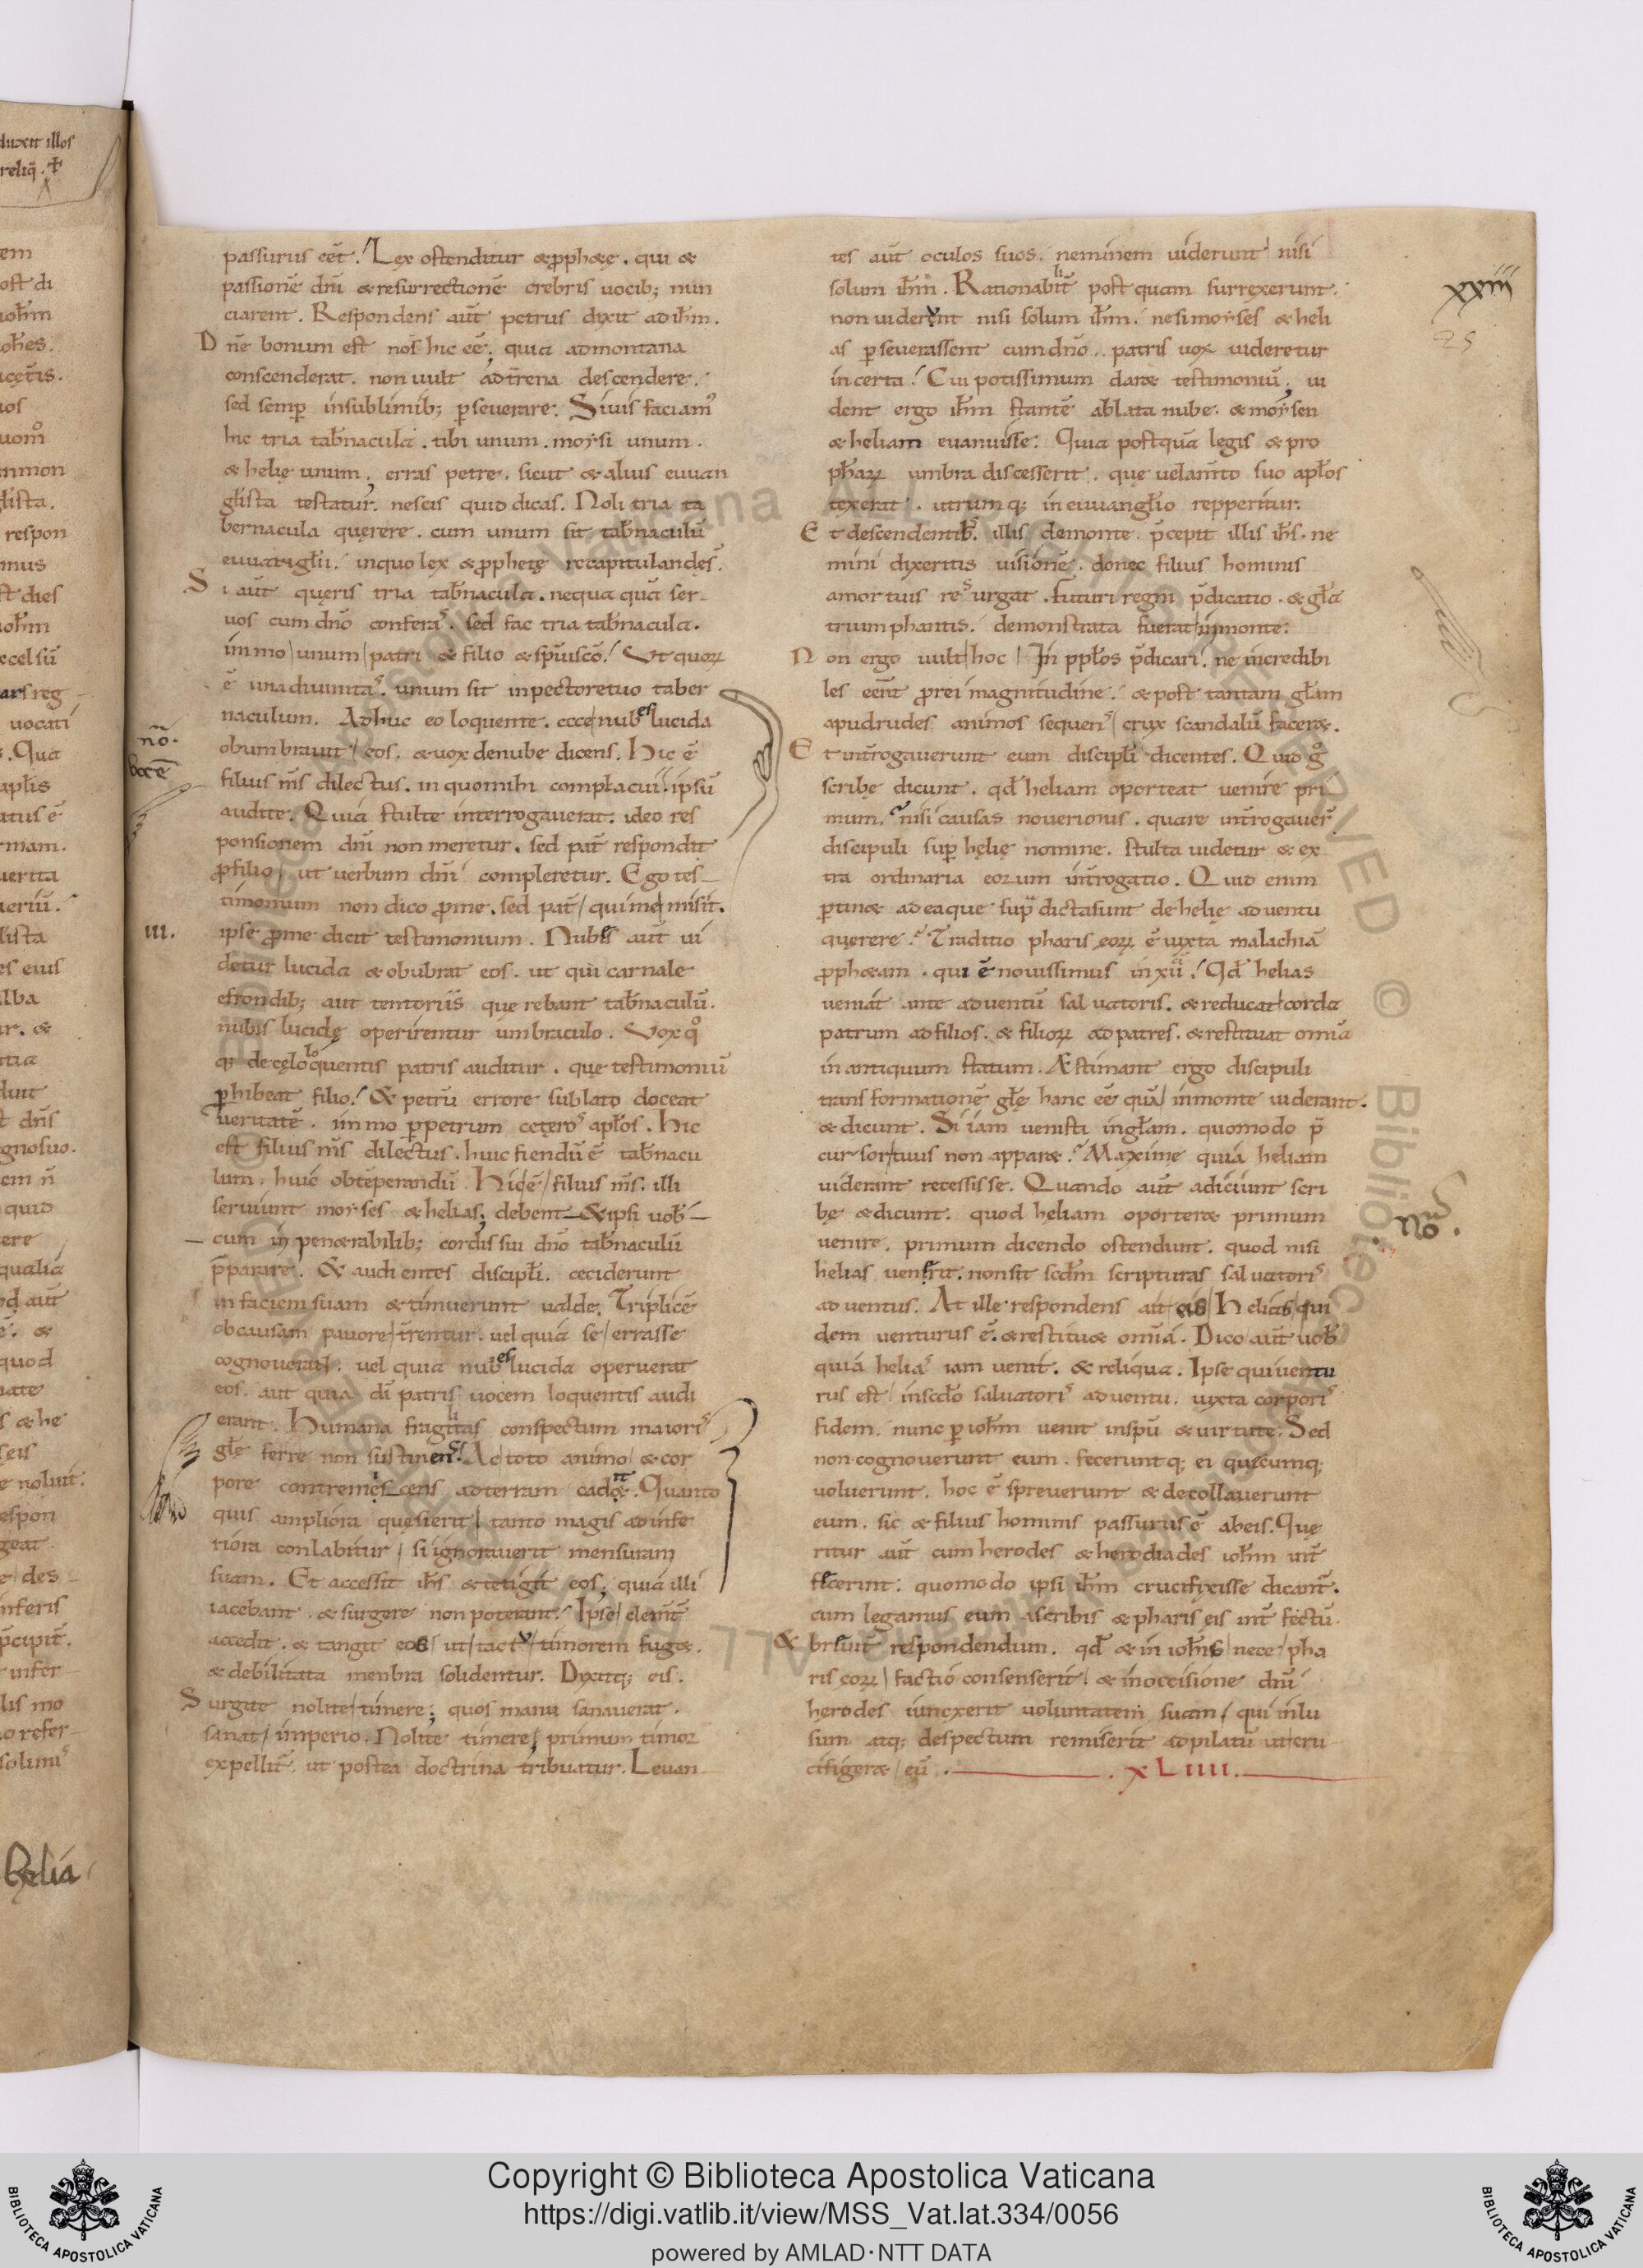 passurus eēt. Lex ostenditur & ꝓph&ę. qui &
passionē dn̄i & resurrectionē crebris uocib; nun
ciarent. Respondens aūt petrus dixit ad ih̄m.
Dn̄e bonum est nos hic eē; quia ad montana
conscenderat. non uult ad tr̄ena descendere.
sed semꝑ in sublimib; ꝑseuerare. Si uis faciam᾽
hic tria tab̄nacula. tibi unum. moysi unum.
& helię unum; erras petre. sicut & alius euuan
gl̄ista testatur. nescis quid dicas. Noli tria ta
bernacula querere. cum unum sit tab̄naculū
euuangl̄ii. in quo lex & ꝓphetę recapitulandę s̄.
Si aūt quęris tria tab̄nacula. nequaquā ser
uos cum dn̄o conferas. sed fac tria tab̄nacula.
immo unum patri & filio & sp̄ui sc̄o. Ut quoꝝ
ē una diuinitas. unum sit in pectore tuo taber
naculum. Adhuc eo loquente. ecce nubes lucida
obumbrauit eos. & uox de nube dicens. Hic ē
filius m̄s dilectus. in quo mihi complacui. ipsū
audite. Quia stulte interrogauerat. ideo res
ponsionem dn̄i non meretur. sed pat̄ respondit
ꝓ filio. ut uerbum dn̄i compleretur. Ego tes
timonium non dico ꝓ me. sed pat̄ qui me misit.
ipse ꝓ me dicit testimonium. Nubes aūt ui
detur lucida & obūbrat eos. ut qui carnale
e frondib; aut tentoriis querebant tab̄naculū.
nubis lucidę operirentur umbraculo. Vox qͦ
q; de cęlo loquentis patris auditur. que testimoniū
ꝑhibeat filio. & petrū errore sublato doceat
ueritatē. immo ꝑ petrum ceteros apl̄os. Hic
est filius m̄s dilectus. huic fiendū ē tab̄nacu
lum. huic obtēperandū. Hic ē filius m̄s. illi
seruiunt moyses & helias; debent & ipsi uob
cum in penetrabilib; cordis sui dn̄o tab̄naculū
p̄parare. & audientes discipl̄i. ceciderunt
in faciem suam & timuerunt ualde. Triplicē
ob causam pauore tr̄entur. uel quia se errasse
cognouerant. uel quia nubes lucida operuerat
eos. aut quia di patris uocem loquentis audi
erant. Humana fragilitas conspectum maioris
gl̄ę ferre non sustinens. Ac toto animo & cor
pore contremescens ad terram cadit. Quanto
quis ampliora quęsierit tanto magis ad infe
riora conlabitur si ignorauerit mensuram
suam. Et accessit ih̄s & tetigit eos; quia illi
iacebant. & surgere non poterant. Ipse clem̄t
accedit. & tangit eos ut tactu timorem fuget.
& debilitata menbra solidentur. Dixitq; eis.
Surgite nolite timere; quos manu sanauerat.
sanat imperio. Nolite timere; primum timor
expellit᾽. ut postea doctrina tribuatur. Leuan
tes aūt oculos suos. neminem uiderunt nisi
solum ih̄m. Rationabilit̄ postquam surrexerunt.
non uiderunt nisi solum ih̄m. ne si moyses & heli
as ꝑseuerassent cum dn̄o. patris uox uideretur
incerta. Cui potissimum daret testimoniū; ui
dent ergo ih̄m stantē ablata nube. & moysen
& heliam euanuisse. Quia postquā legis & pro
ph&aꝝ umbra discesserit. quę uelam̄to suo apl̄os
texerat. utrumq; in euuangl̄io repperitur.
Et descendentib᾽ illis de monte. p̄cepit illis ih̄s. ne
mini dixeritis uisionē. donec filius hominis
a mortuis resurgat. futuri regni p̄dicatio. & gl̄a
triumphantis. demonstrata fuerat in monte.
Non ergo uult hoc in ppl̄os p̄dicari. ne incredibi
les eēnt ꝓ rei magnitudine. & post tantam gl̄am
apud rudes animos sequens crux scandalū faceret.
Et int̄rogauerunt eum discipl̄i dicentes. Quid gͦ
scribę dicunt. qd̄ heliam oporteat uenire pri
mum. nisi causas nouerimus. quare int̄rogauer̄
discipuli suꝑ helię nomine. stulta uidetur & ex
tra ordinaria eorum int̄rogatio. Quid enim
ꝑtinet ad ea que supra dicta sunt de helię aduentu
querere. Traditio pharisęoꝝ ē iuxta malachiā
ꝓph&am. qui ē nouissimus in xii. Qd̄ helias
ueniat ante aduentū saluatoris. & reducat corda
patrum ad filios. & filioꝝ ad patres. & restituat omnia
in antiquum statum. Æstimant ergo discipuli
transformationē gl̄ę hanc eē quā in monte uiderant.
& dicunt. Si iam uenisti in gl̄am. quomodo p̄
cursor tuus non apparet. Maxime quia heliam
uiderant recessisse. Quando aūt adiciunt scri
bę & dicunt. quod heliam oporteret primum
uenire. primum dicendo ostendunt. quod nisi
helias uenerit. non sit scd̄m scripturas saluatoris
aduentus. At ille respondens ait eis Helias qui
dem uenturus ē. & restituet omnia. Dico aūt uob
quia helias iam uenit. & reliqua. Ipse qui uentu
rus est in scd̄o saluatoris aduentu. iuxta corporis
fidem. nunc ꝑ ioh̄m uenit in sp̄u & uirtute. Sed
non cognouerunt eum. fecerunt q; ei quęcumq;
uoluerunt. hoc ē spreuerunt & decollauerunt
eum. sic & filius hominis passurus ē ab eis. Quę
ritur aūt cum herodes & herodiades ioh̄m int̄
fecerint. quomodo ipsi ih̄m crucifixisse dicant᾽.
cum legamus eum a scribis & phariseis int̄fectū.
& breuit̄ respondendum. qd̄ & in ioh̄is nece pha
risęoꝝ factio consenserit. & in occisione dn̄i
herodes iunxerit uoluntatem suam qui inlu
sum atq; despectum remiserit ad pilatū ut cru
cifigeret eū. XLIIII.
nō.
uocē
III.
xxiiii
25
nō.
duxit illos
reliq̄.
helia
Copyright © Biblioteca Apostolica Vaticana
https://digi.vatlib.it/view/MSS_Vat.lat.334/0056
powered by AMLAD·NTT DATA
BIBLIOTECA APOSTOLICA VATICANA
BIBLIOTECA APOSTOLICA VATICANA